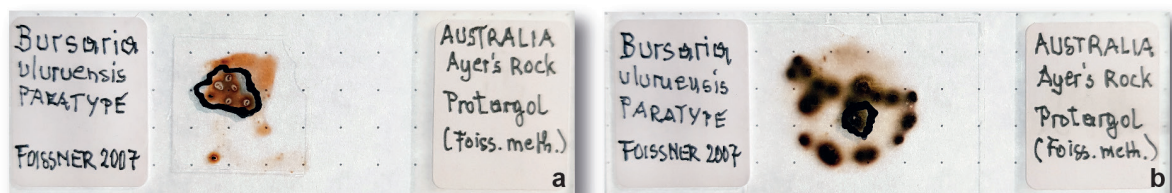 Bursaria
uluruensis
PARATYPE
FOISSNER 2007
AUSTRALIA
Ayer's Rock
Protargol
(Foiss. meth.)
a
Bursaria
uluruensis
PARATYPE
FOISSNER 2007
AUSTRALIA
Ayer's Rock
Protargol
(Foiss. meth.)
b